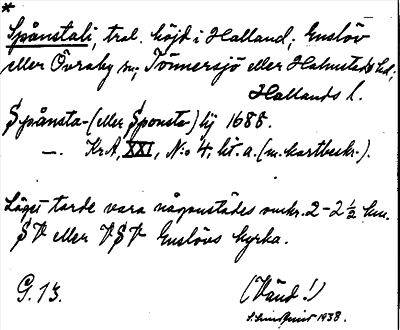 *
Spånstali, trol. höjd i Halland; Enslöv
eller Övraby sn; Tönnersjö eller Halmstads hd;
Hallands l.
Spånsta-(eller Sponsta-) lij 1688.
—. KrA, XXI, N:o 4, lit. a. (m. kartbeskr.).
Läget torde vara någonstädes omkr. 2-2½ km.
SV eller VSV Enslövs kyrka.
G. 13.
(Vänd!)
1938.